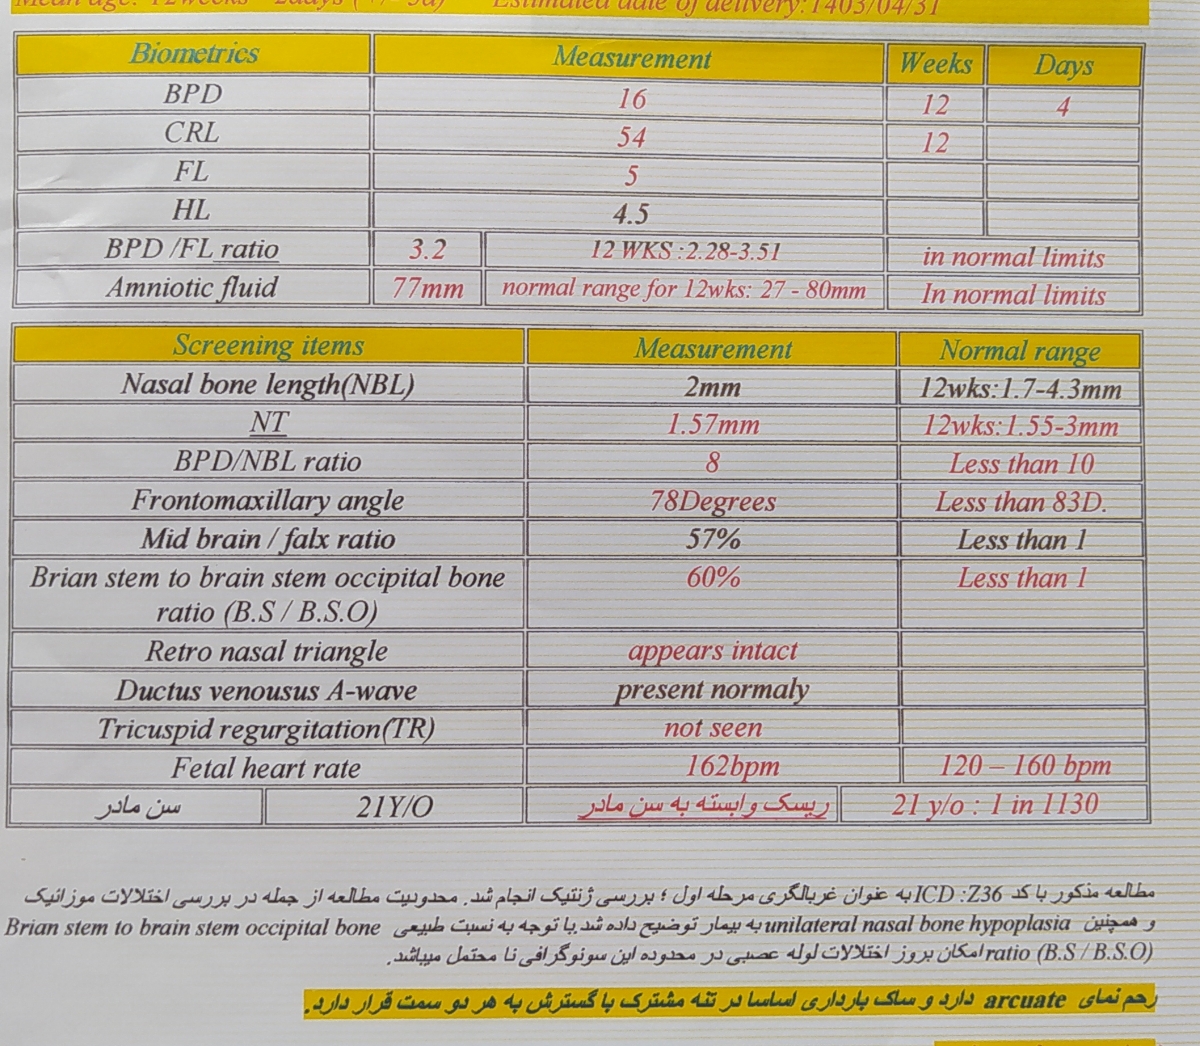 Mean age: 12weeks 2days (+/- 5d) Estimated date of delivery:1403/04/31
Biometrics Measurement Weeks Days
BPD 16 12 4
CRL 54 12
FL 5
HL 4.5
BPD /FL ratio 3.2 12 WKS :2.28-3.51 in normal limits
Amniotic fluid 77mm normal range for 12wks: 27 - 80mm In normal limits
Screening items Measurement Normal range
Nasal bone length(NBL) 2mm 12wks:1.7-4.3mm
NT 1.57mm 12wks:1.55-3mm
BPD/NBL ratio 8 Less than 10
Frontomaxillary angle 78Degrees Less than 83D.
Mid brain / falx ratio 57% Less than 1
Brian stem to brain stem occipital bone 60% Less than 1
ratio (B.S / B.S.O)
Retro nasal triangle appears intact
Ductus venousus A-wave present normaly
Tricuspid regurgitation(TR) not seen
Fetal heart rate 162bpm 120 – 160 bpm
سن مادر 21Y/O ریسک وابسته به سن مادر 21 y/o : 1 in 1130
مطالعه مذکور با کد ICD :Z36 به عنوان غربالگری مرحله اول ؛ بررسی ژنتیک انجام شد. محدودیت مطالعه از جمله در بررسی اختلالات موزائیک
و همچنین unilateral nasal bone hypoplasia به بیمار توضیح داده شد.با توجه به نسبت طبیعی Brian stem to brain stem occipital bone
ratio (B.S / B.S.O) امکان بروز اختلالات لوله عصبی در محدوده این سونوگرافی نا محتمل میباشد.
رحم نمای arcuate دارد و ساک بارداری اساسا در تنه مشترک با گسترش به هر دو سمت قرار دارد.